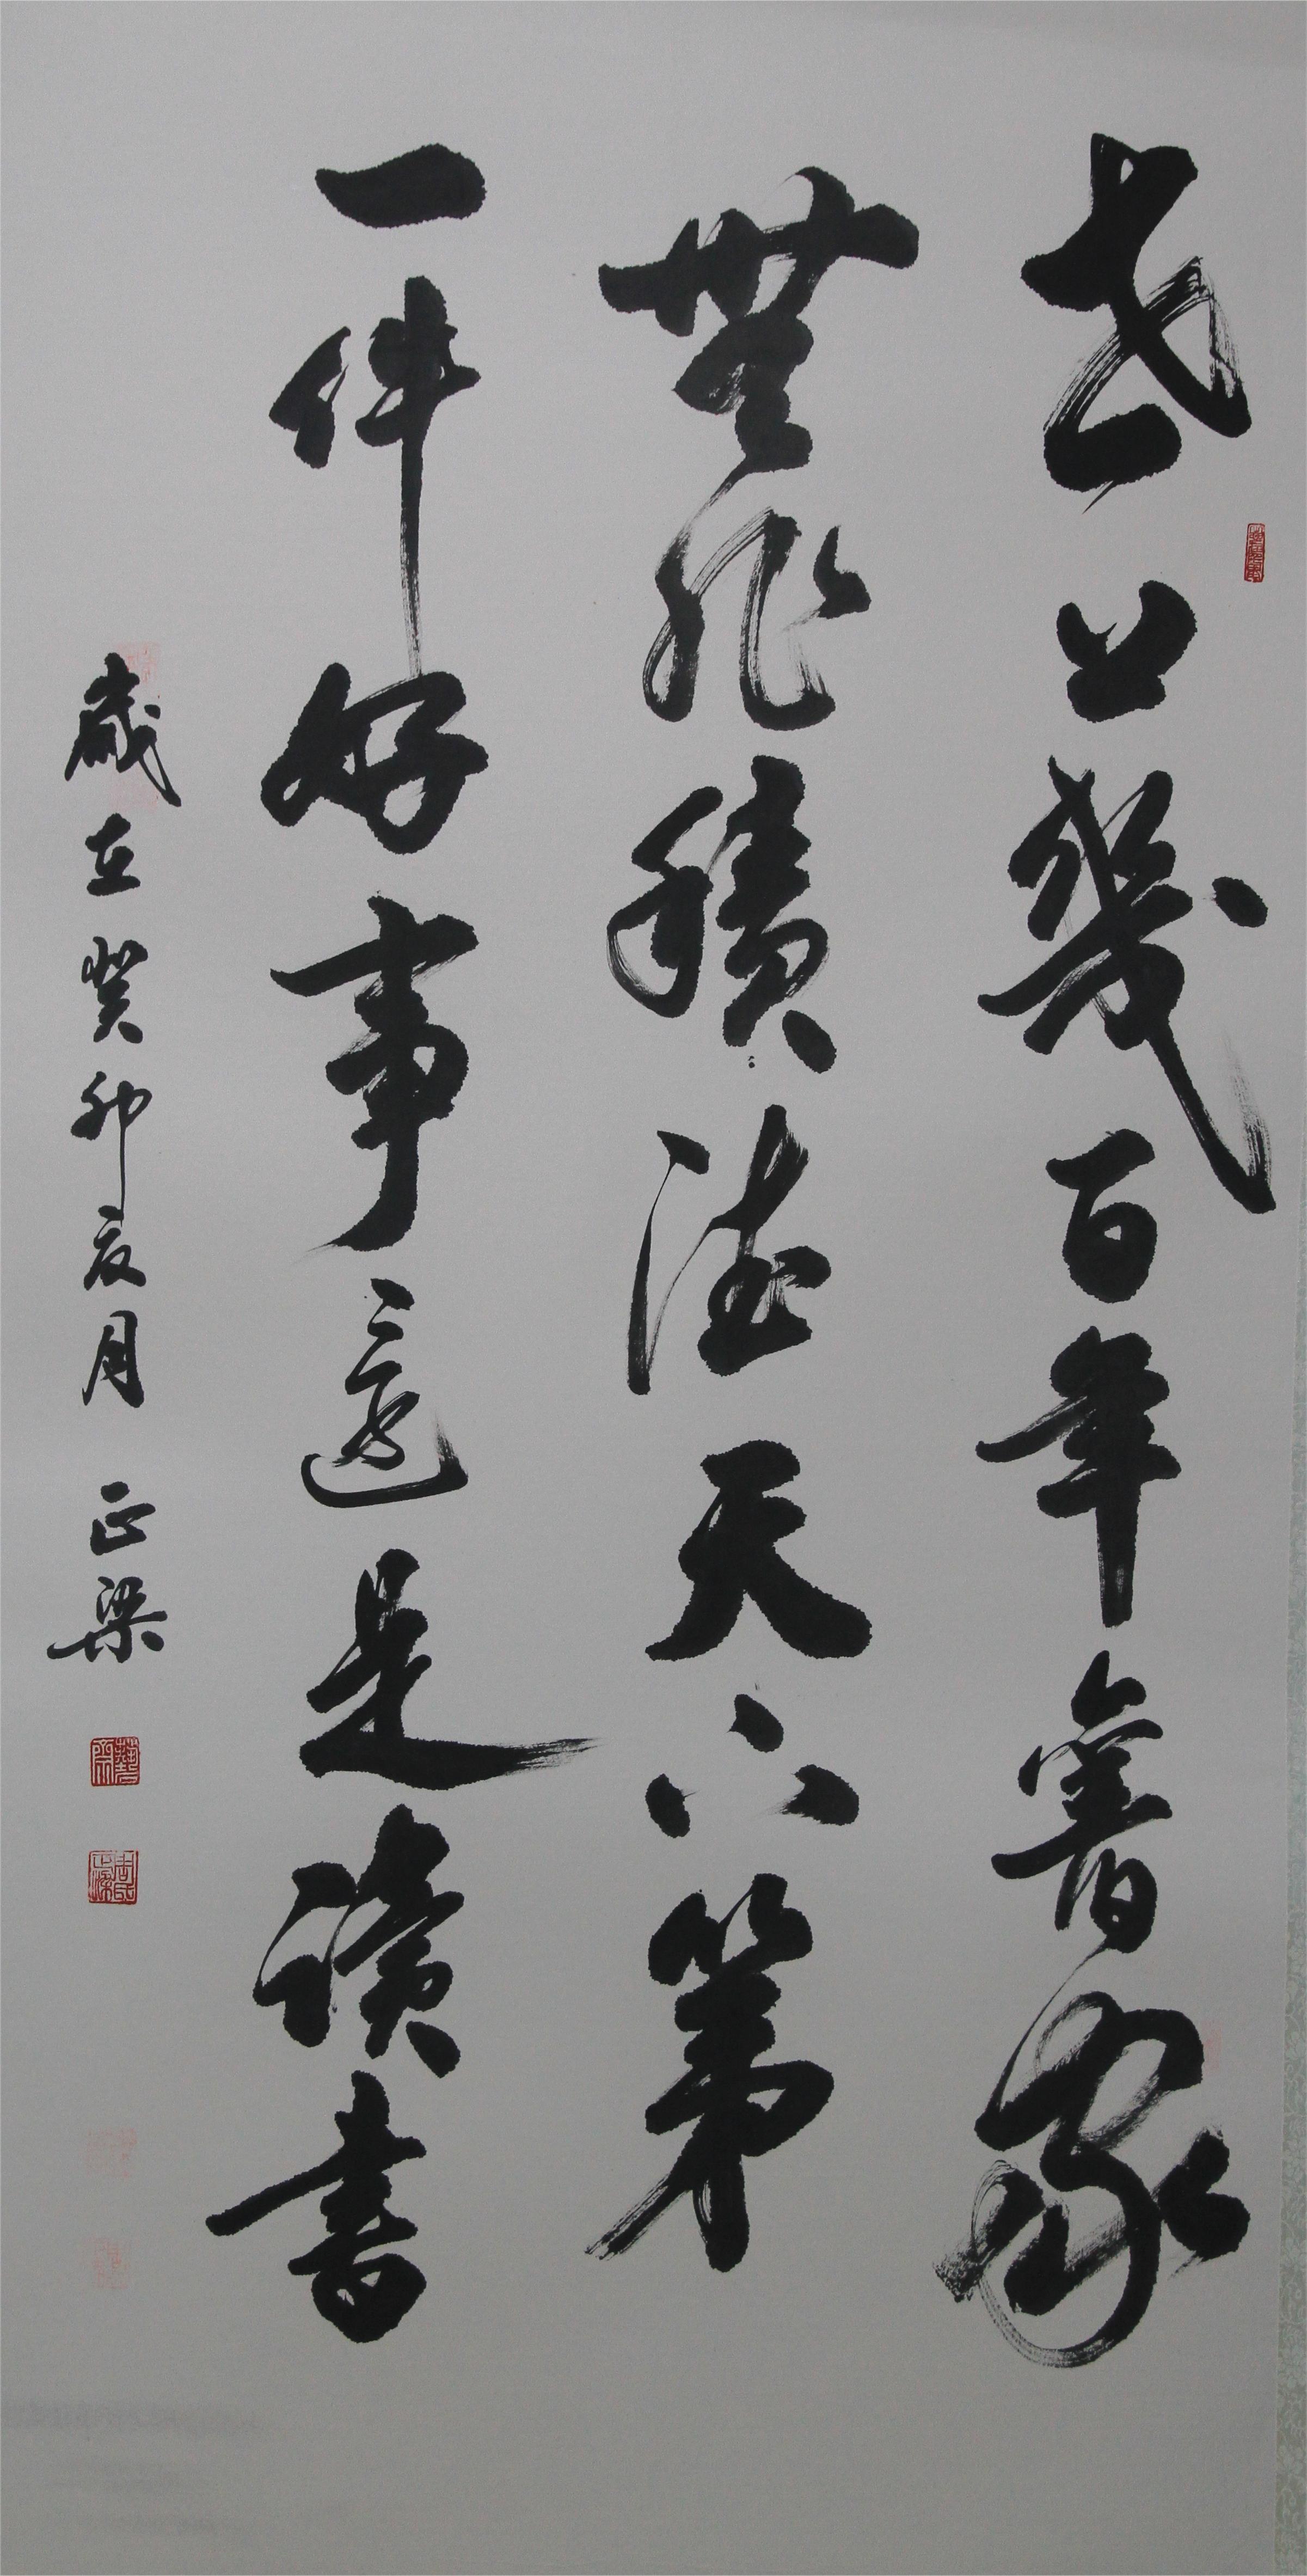 世上幾百年舊家
無非積德天下第
一件好事還是讀書
歲在癸卯夏月 正梁